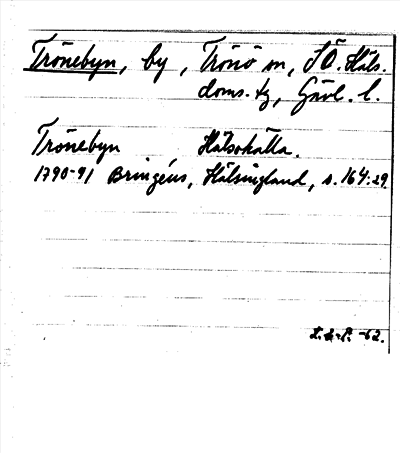 Trönebyn, by, Trönö sn, SÖ. Häls.
doms. tg, Gävl. l.
Trönebyn Hälsokälla.
1790-91 Bringéus, Hälsingland, s. 164:29.
-62.